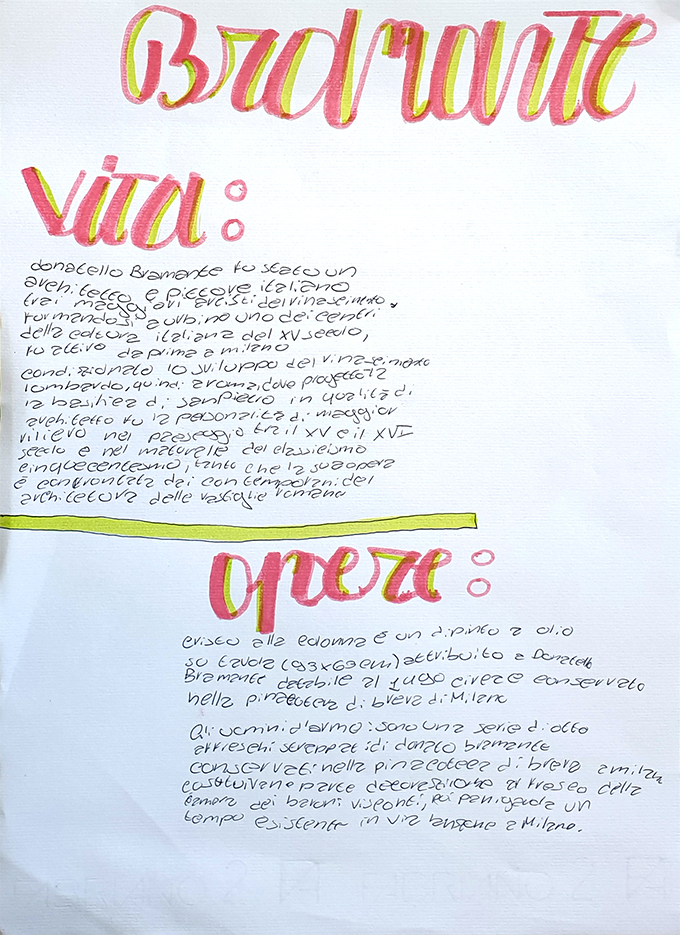 Bramante
vita:
donatello Bramante fu stato un
architetto e pittore italiano
trai maggiori artisti del rinascimento.
Formandosi a urbino uno dei centri
della coltura italiana del XV secolo,
fu attivo da prima a milano
condizionato lo sviluppo del rinascimento
lombardo, quindi a roma, dove progettò la
la basilica di san Pietro in qualità di
architetto fu la personalità di maggior
rilievo nel passaggio tra il XV e il XVI
secolo e nel maturale del classicismo
cinquecentesmo, tanto che la sua opera
è confrontata dai contemporani del
architetura delle vastiglie romane
opere:
cristo alla colonna è un dipinto a olio
su tavola (93x69 cm) attribuito a Donatello
Bramante databile al 1490 circa e conservato
nella pinacoteca di brera di Milano
Gli uomini d'armo: sono una serie di otto
affreschi strappati di donato bramante
conservati nella pinacoteca di brera a milano
costituivano parte decorazione a fresco della
camera dei baroni visconti, poi panigarola un
tempo esistente in via lanzone a Milano.
FABRIANO 2 FABRIANO 2